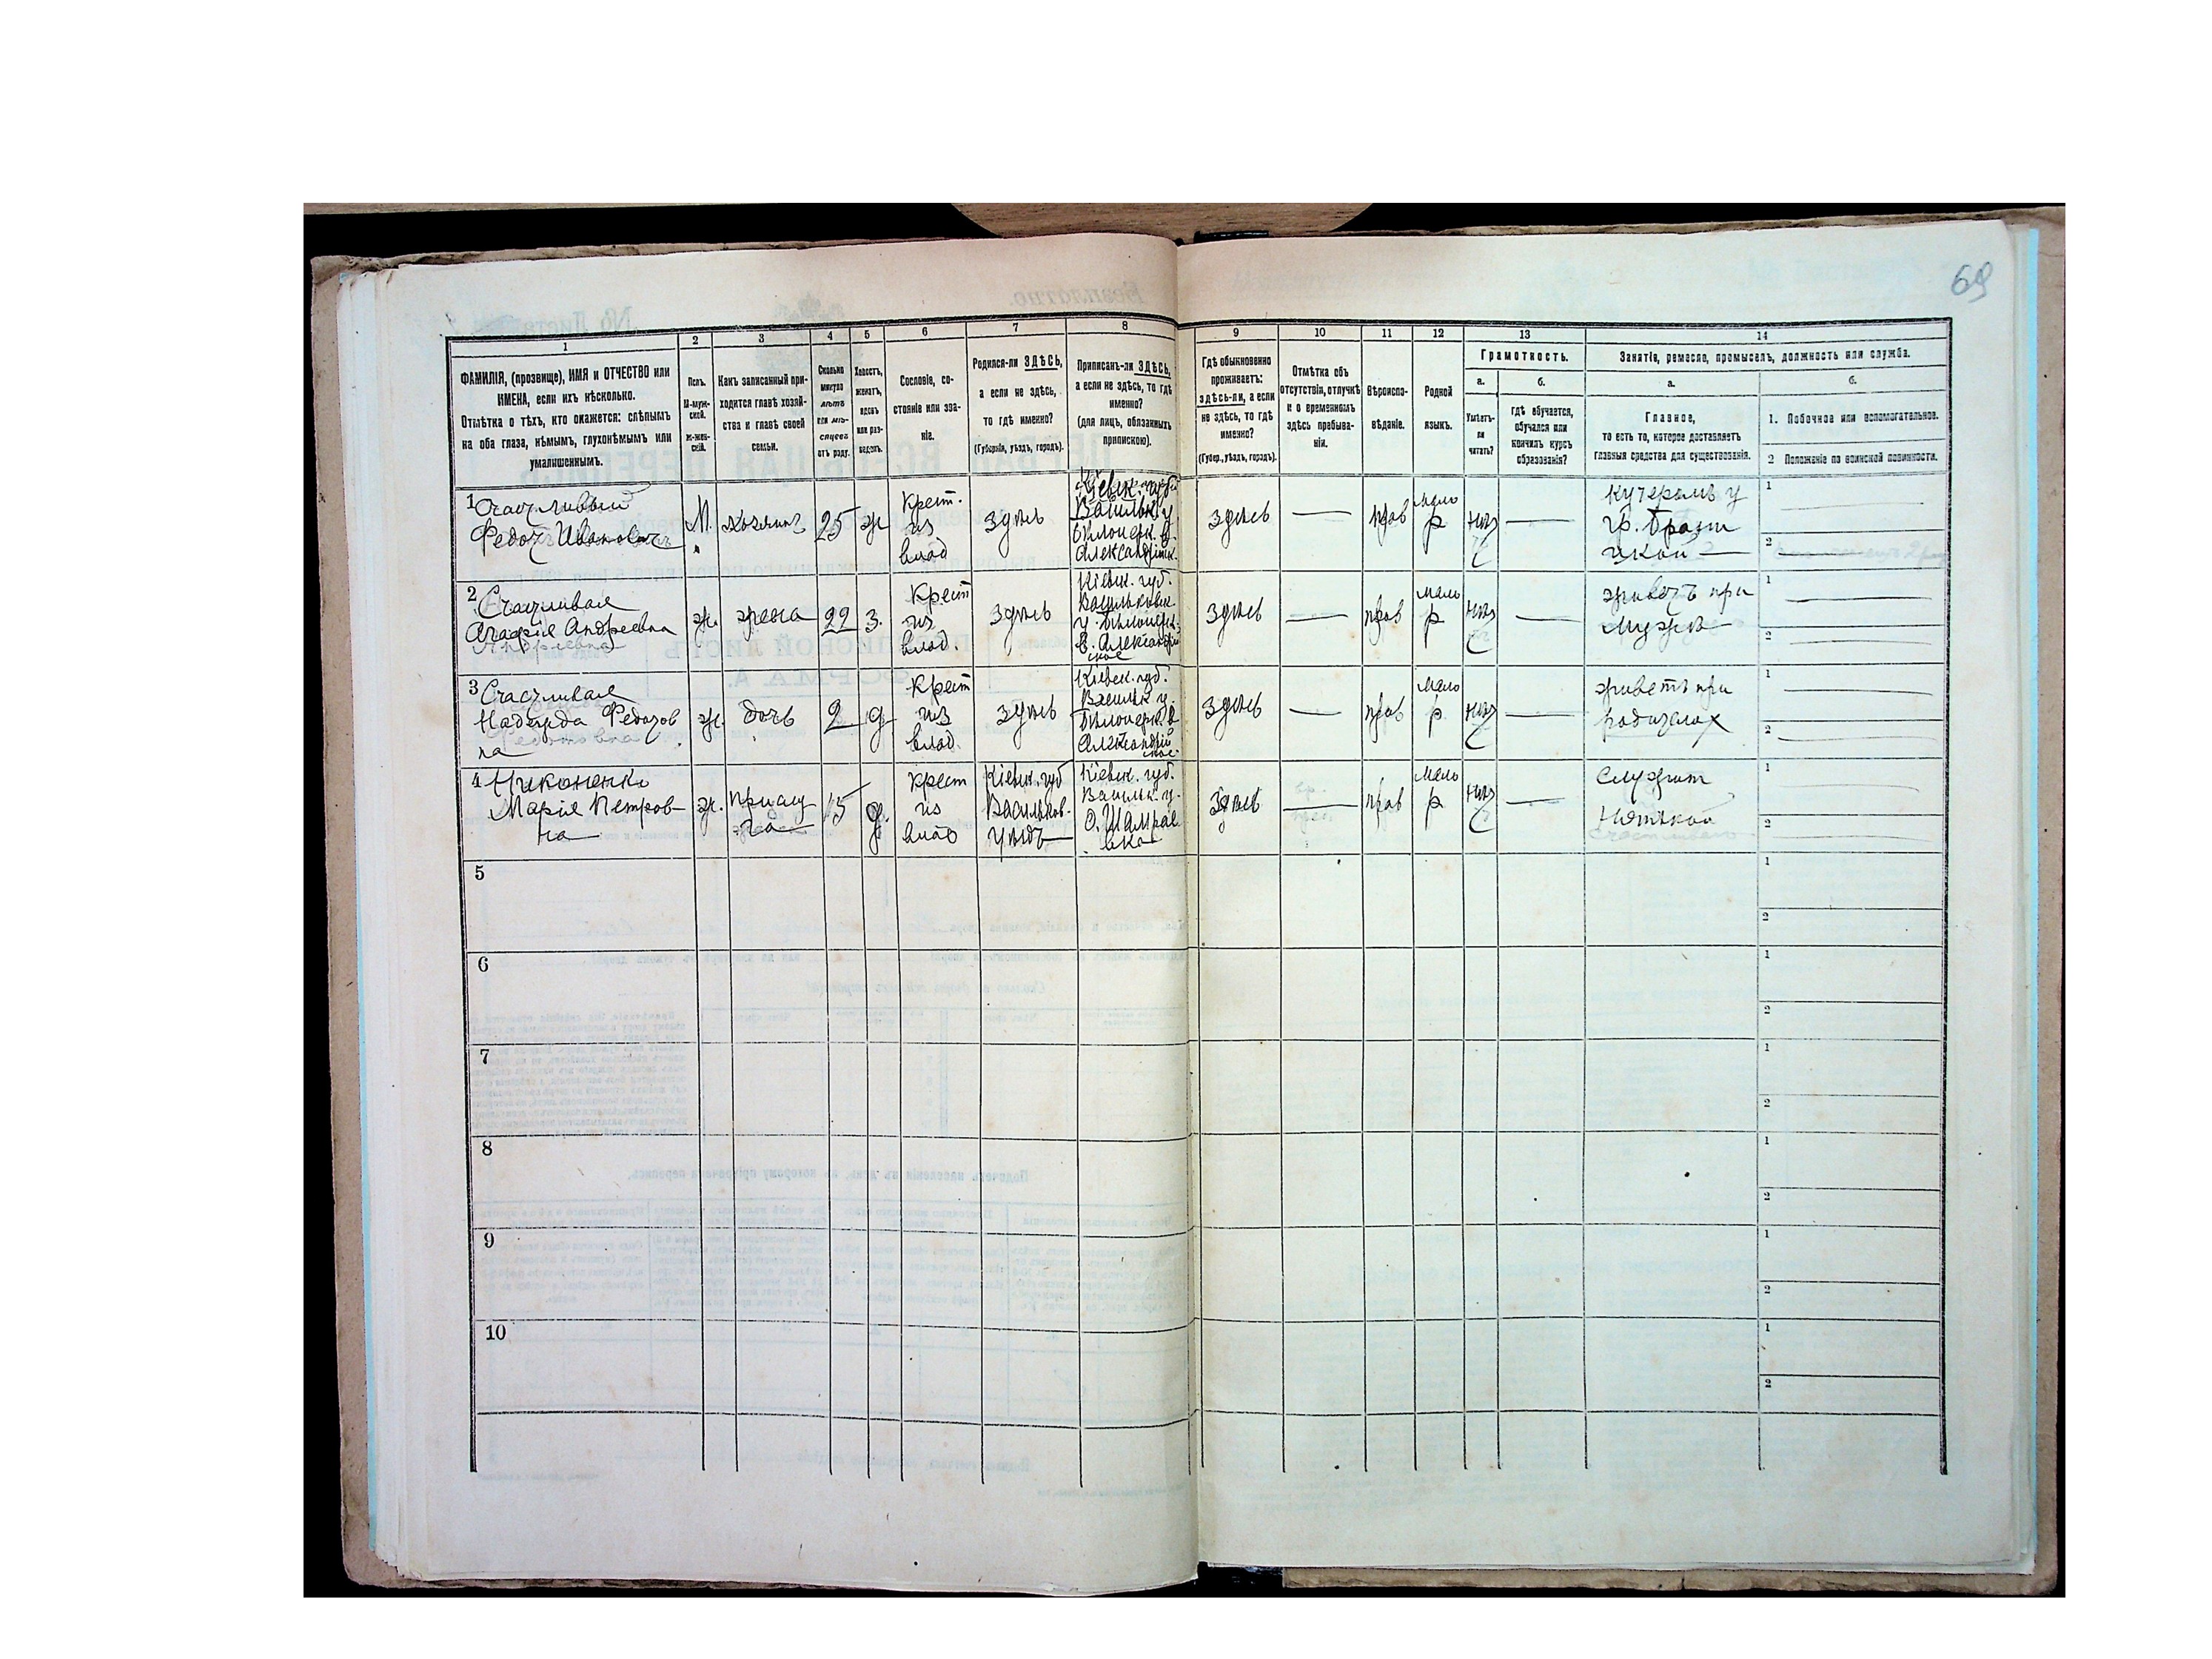 69
1
2
3
4
5
6
7
8
9
10
11
12
13
14
ФАМИЛІЯ, (прозвище), ИМЯ и ОТЧЕСТВО или
ИМЕНА, если ихъ нѣсколько.
Отмѣтка о тѣхъ, кто окажется: слѣпымъ
на оба глаза, нѣмымъ, глухонѣмымъ или
умалишеннымъ.
Полъ.
М-муж-
ской.
ж-жен-
скій.
Какъ записанный при-
ходится главѣ хозяй-
ства и главѣ своей
семьи.
Сколько
минуло
лѣтъ
или мѣ-
сяцевъ
отъ роду.
Холостъ,
женатъ,
вдовъ
или раз-
веденъ.
Сословіе, со-
стояніе или зва-
ніе.
Родился-ли ЗДѢСЬ,
а если не здѣсь,
то гдѣ именно?
(Губернія, уѣздъ, городъ).
Приписанъ-ли ЗДѢСЬ,
а если не здѣсь, то гдѣ
именно?
(для лицъ, обязанныхъ
припискою).
Гдѣ обыкновенно
проживаетъ:
здѣсь-ли, а если
не здѣсь, то гдѣ
именно?
(Губер., уѣздъ, городъ).
Отмѣтка объ
отсутствіи, отлучкѣ
и о временномъ
здѣсь пребыва-
ніи.
Вѣроиспо-
вѣданіе.
Родной
языкъ.
Грамотность.
а.
б.
Умѣетъ-
ли
читать?
гдѣ обучается,
обучался или
кончилъ курсъ
образованія?
Занятіе, ремесло, промыселъ, должность или служба.
а.
б.
Главное,
то есть то, которое доставляетъ
главныя средства для существованія.
1. Побочное или вспомогательное.
2 Положеніе по воинской повинности.
1 Счасливый
Федотъ Ивановичъ
М.
хозяинъ
25
ж
Крест.
из
влад
здѣсь
Кіевск. губ.
Васильк. у
Бѣлоцерк. в.
Александрійск.
здѣсь
—
прав
мало
р
нѣт
—
кучеромъ у
гр. Брани
цкой —
1
2
2 Счасливая
Агафія Андреевна
Андреевна
ж.
жена
22
з.
Крест
из
влад.
здѣсь
Кіевск. губ.
Васильковск.
у. Бѣлоцерк.
в. Александрій
ское
здѣсь
—
прав
мало
р
нѣт
—
живетъ при
мужѣ
1
2
3 Счасливая
Надежда Федотов
на
Федотовна
ж.
дочь
2
д
Крест
из
влад.
здѣсь
Кіевск. губ.
Васильк у.
Бѣлоцерк. в
Александрій
ское.
здѣсь
—
прав
мало
р.
нѣт
—
живетъ при
родителях
1
2
4 Никоненко
Марія Петров-
на
ж.
прислу
га
15
д.
крест
из
влад
Кіевск. губ
Васильков.
уѣздъ
Кіевск. губ.
Васильк. у.
здѣсь
—
прав
мало
р
нѣт
—
Служит
Нянькой
1
2
5
1
2
6
1
2
7
1
2
8
1
2
9
1
2
10
1
2